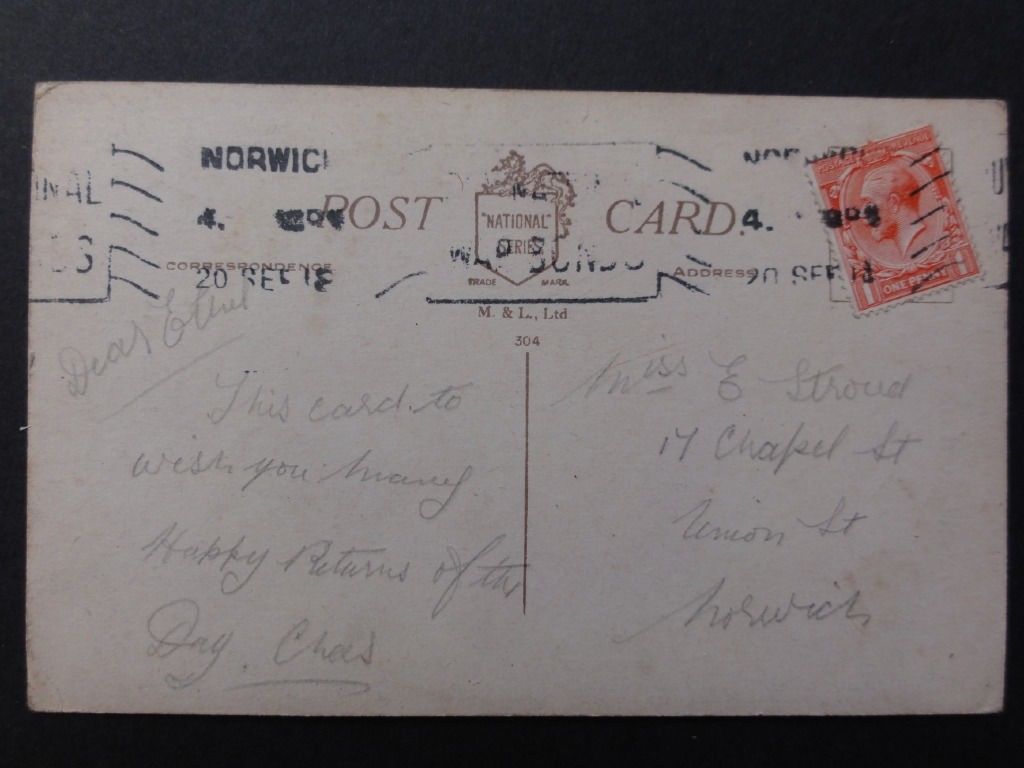 NORWICH
4.
20 SEP 18
POST CARD.
"NATIONAL"
SERIES
TRADE MARK
M. & L., Ltd
304
CORRESPONDENCE
ADDRESS
WAR BONDS
4.
20 SEP 18
ONE PENNY
Dear Ethel
This card to
wish you many
Happy Returns of the
Day. Chas
Miss E Stroud
17 Chapel St
Union St
Norwich